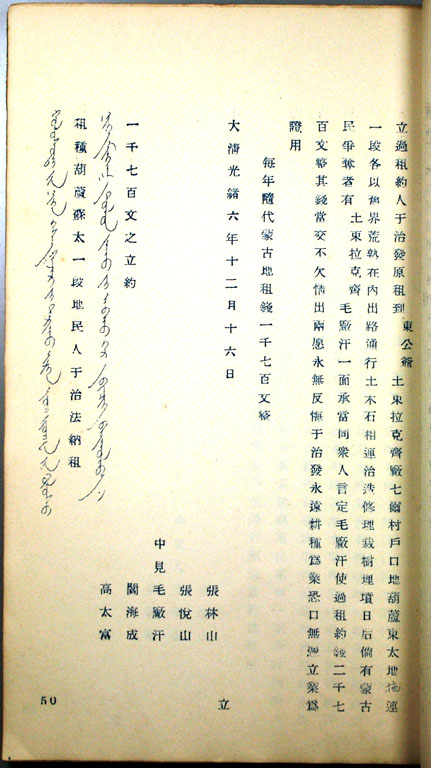 立過租約人于治發原租到 東公爺 土東拉克齊廠七爾村戶口地葫蘆東太地拖連
一段各以舊界荒熟在內出路通行土木石相連治造修理栽樹埋墳日后倘有蒙古
民爭奪者有 土東拉克齊 毛廠汗一面承當同衆人言定毛廠汗使過租約錢二千七
百文整其錢當交不欠情出兩愿永無反悔于治發永遠耕種爲業恐口無憑立業爲
證用
每年隨代蒙古地租錢一千七百文整
大清光緒六年十二月十六日
立
張林山
張悅山
中見毛廠汗
閻海成
高太富
一千七百文之立約
租種葫蘆蘇太一段地民人于治法納租
50